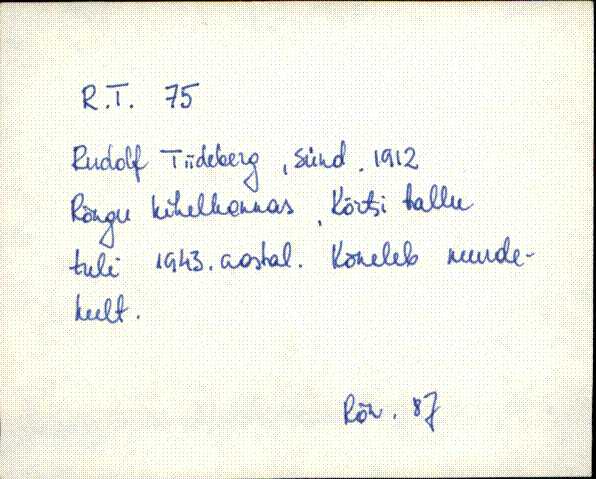 R.T. 75
Rudolf Tiideberg, sünd. 1912
Rõngu kihelkonnas, Kõrtsi tallu
tuli 1943. aastal. Kõneleb murde-
kelt.
Rõu. 87